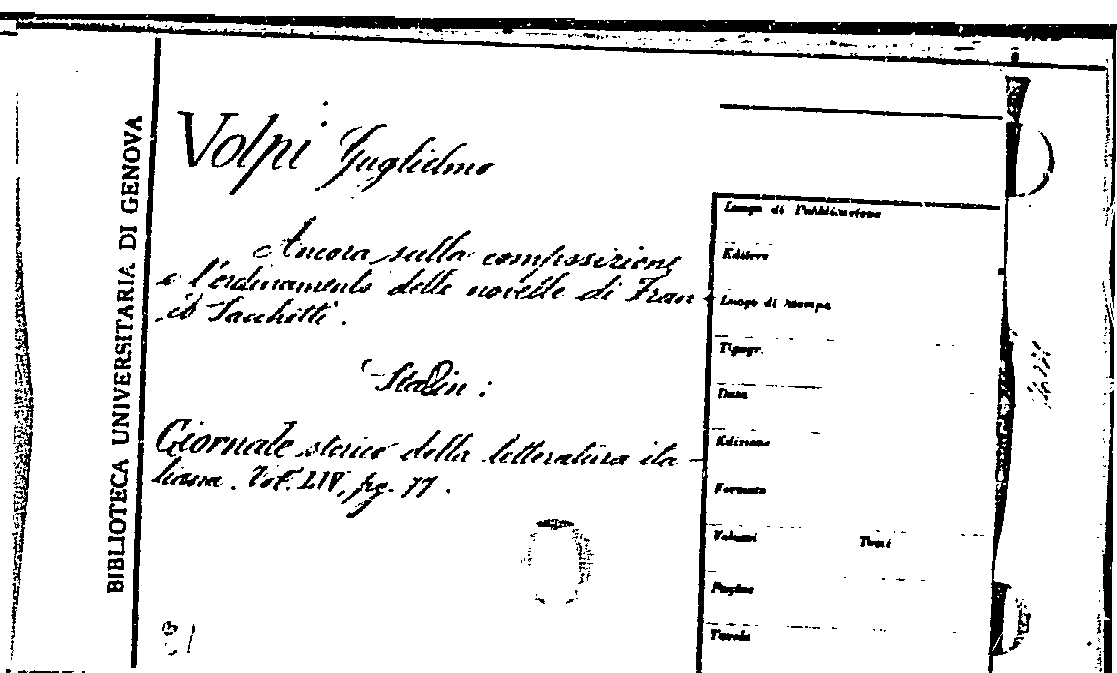 BIBLIOTECA UNIVERSITARIA DI GENOVA
Volpi Guglielmo
Ancora sulla composizione
e l'ordinamento delle novelle di Fran-
co Sacchetti.
Sta in:
Giornale storico della letteratura ita-
liana. Vol. LIV, pg. 77.
Luogo di Pubblicazione
Editore
Luogo di stampa
Tipogr.
Data
Edizione
Formato
Volumi Tomi
Pagine
Tavole